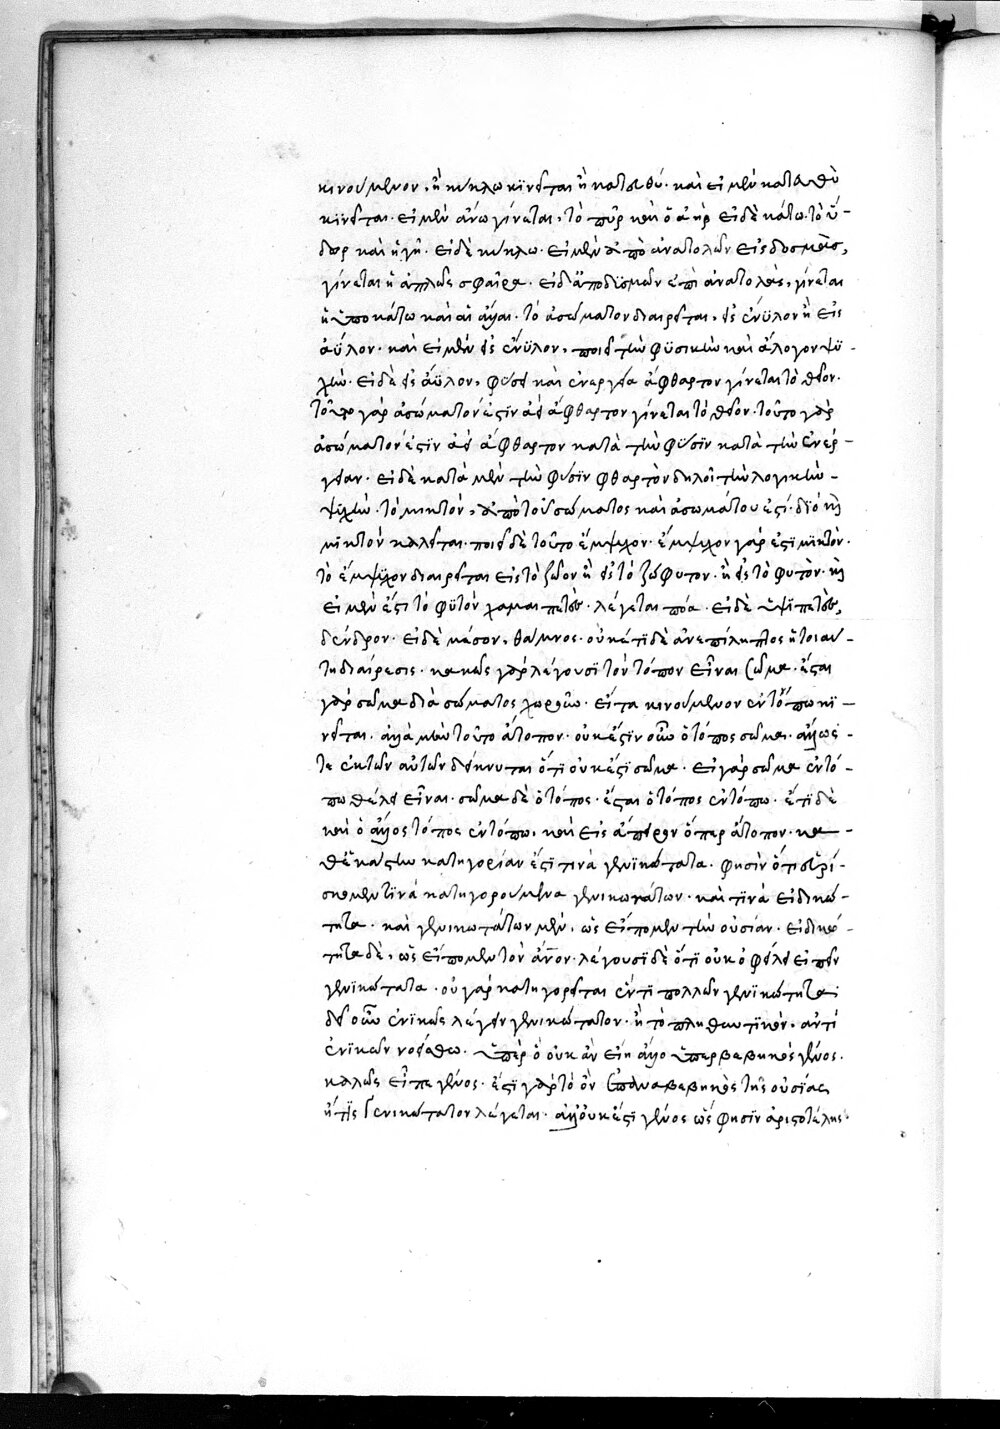 κινούμενον, ἢ κύκλω κϊνεῖται ἢ κατευθύ· καὶ εἰ μὲν κατευθὺ
κϊνεῖται· εἰ μὲν ἄνω γίνεται, τὸ πῦρ καὶ ὁ ἀὴρ εἰ δὲ κάτω. τὸ ὕ-
δωρ καὶ ἡ γῆ· εἰ δὲ κύκλω· εἰ μὲν ἀπὸ ἀνατολῶν εἰς δυσμὰς,
γίνεται ἡ ἁπλῶς σφαῖρα· εἰ δ' ἀπὸ δϋσμῶν ἐπὶ ἀνατολὰς, γίνεται
ἡ ὑποκάτω καὶ αἱ ἄλλαι· τὸ ἀσώματον διαιρεῖται, εἰς ἐνϋλον ἢ εἰς
ἀΰλον· καὶ εἰ μὲν εἰς ἐνϋλον, ποιεῖ τὴν φϋσικὴν καὶ ἄλογον ψϋ-
χήν· εἰ δὲ εἰς ἀϋλον, φύσει καὶ ἐνεργεία ἄφθαρτον γίνεται τὸ θεῖον·
τοῦτο γὰρ ἀσώματον ἐστϊν ἀεὶ ἄφθαρτον γίνεται τὸ θεῖον· τοῦτο γὰρ
ἀσώματον ἐστϊν ἀεὶ ἄφθαρτον κατὰ τὴν φύσϊν κατὰ τὴν ἐνέρ-
γειαν· εἰ δὲ κατὰ μὲν τὴν φύσϊν φθαρτὸν δηλοῖ τὴν λογικὴν
ψϋχήν· τὸ μικτὸν, ἀπὸ τοῦ σώματος καὶ ἀσωμάτου ἐστί· δϊὸ καὶ
μϊκτὸν καλεῖται· ποιεῖ δὲ τοῦτο ἔμψυχον· ἔμψυχον γάρ ἐστϊ μϊκτὸν·
τὸ ἔμψϋχον διαιρεῖται εἰς τὸ ζῶον ἢ εἰς τὸ ζώφυτον· ἢ εἰς τὸ φυτὸν· καὶ
εἰ μὲν ἐστι τὸ φϋτὸν χαμαιπετὲς· λέγεται πόα· εἰ δὲ ὑψϊπετὲς,
δένδρον· εἰ δὲ μέσον, θάμνος· οὐκέτϊ δὲ ἀνεπίληπτος ἡ τοιαύ-
τη διαίρεσις· κακῶς γὰρ λέγουσϊ τὸν τόπον εἶναι σῶμα· ἔσται
γὰρ σῶμα διὰ σώματος χωροῦν· εἶτα κινούμενον ἐν τόπω κϊ-
νεῖται. ἀλλὰ μὴν τοῦτο ἄτοπον· οὐκ ἔστϊν οὖν ὁ τόπος σῶμα· ἄλλως
τε ἐκ τῶν αὐτῶν δείκνυται ὅτϊ οὐκ ἔστϊ σῶμα· εἰ γὰρ σῶμα ἐν τό-
πω θέλει εἶναι· σῶμα δὲ ὁ τόπος· ἔσται ὁ τόπος ἐν τόπω· ἔτϊ δὲ
καὶ ὁ ἄλλος τόπος ἐν τόπω, καὶ εἰς ἄπειρον ὅπερ ἄτοπον· κα-
θἑκάστην κατηγορίαν ἐστϊ τινὰ γενϊκώτατα· φησὶν ὅτι εὑρί-
σκομεν τϊνὰ κατηγορούμενα γενικωτάτων· καὶ τϊνὰ εἰδικώ-
τατα· καὶ γενικωτάτων μὲν, ὡς εἴπομεν τὴν οὐσίαν· εἰδικώ-
τατα δὲ, ὡς εἴπομεν τὸν ἄνον· λέγουσϊ δὲ ὅτϊ οὐκ ὀφείλει εἰπεῖν
γενϊκώτατα· οὐ γὰρ κατηγορεῖται ἐντϊ πολλῶν γενϊκώτατα·
δεῖ οὖν ἑνϊκῶς λέγειν γενικώτατον· ἢ τὸ πληθυντϊκὸν, ἀντὶ
ἑνϊκῶν νοείσθω· ὑπὲρ ὃ οὐκ ἂν εἴη ἄλλο ὑπερβεβηκὸς γένος·
καλῶς εἶπε γένος· ἔστϊ γὰρ τὸ ὂν ἐπαναβεβηκὸς τῆς οὐσίας
ἥτϊς γενικώτατον λέγεται· ἀλλ' οὐκ ἔστϊ γένος ὥς φησϊν ἀριστοτέλης·